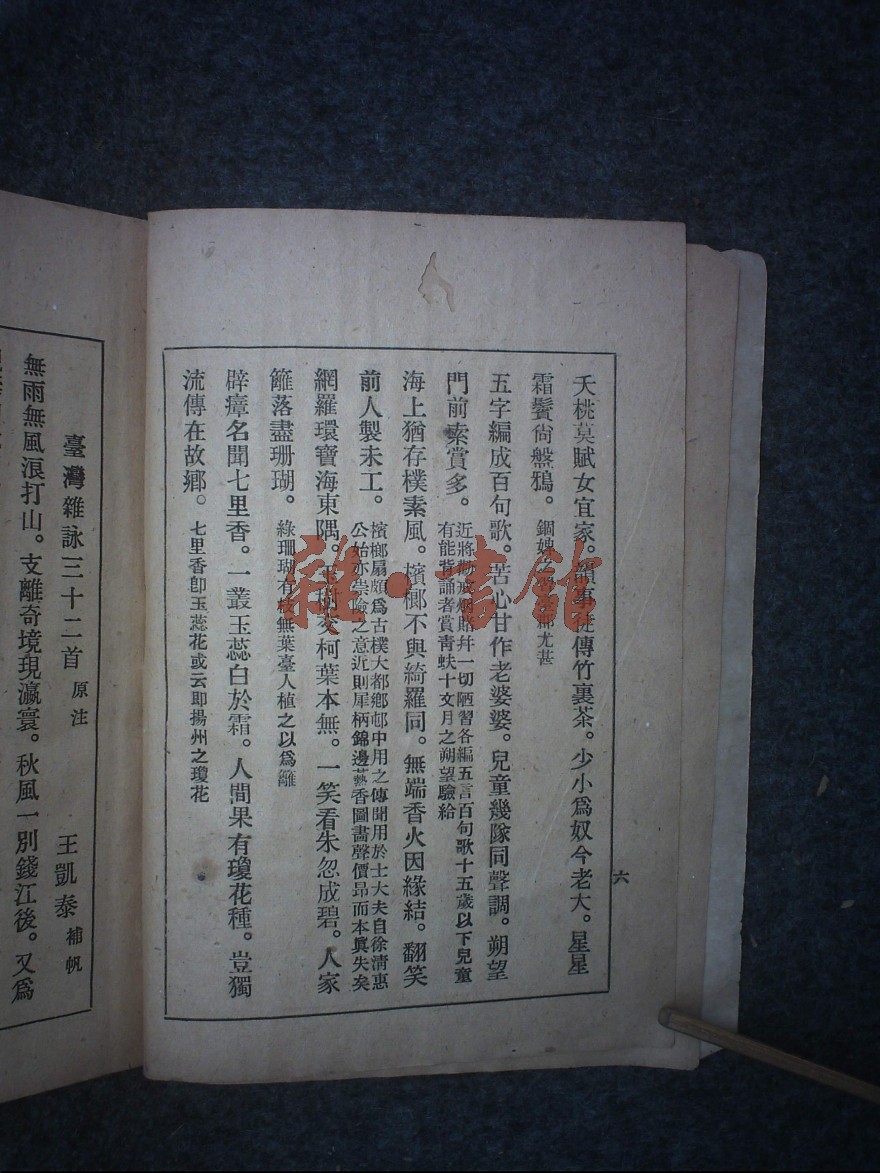 夭桃莫賦女宜家。韻事徒傳竹裏茶。少小爲奴今老大。星星
霜鬢尙盤鴉。錮婢之習臺郡尤甚
五字編成百句歌。苦心甘作老婆婆。兒童幾隊同聲調。朔望
門前索賞多。近將勸戒烟賭幷一切陋習各編五言百句歌十五歲以下兒童
有能背誦者賞靑蚨十文月之朔望驗給
海上猶存樸素風。檳榔不與綺羅同。無端香火因緣結。翻笑
前人製未工。檳榔扇頗爲古樸大都鄕邨中用之傳聞用於士大夫自徐淸惠
公始亦崇儉之意近則犀柄錦邊爇香圖畫聲價昂而本眞失矣
網羅環寶海東隅。玉樹交柯葉本無。一笑看朱忽成碧。人家
籬落盡珊瑚。綠珊瑚有枝無葉臺人植之以爲籬
辟瘴名聞七里香。一叢玉蕊白於霜。人間果有瓊花種。豈獨
流傳在故鄕。七里香卽玉蕊花或云卽揚州之瓊花
六
臺灣雜詠三十二首 原注 王凱泰 補帆
無雨無風浪打山。支離奇境現瀛寰。秋風一別錢江後。又爲
雜·書館